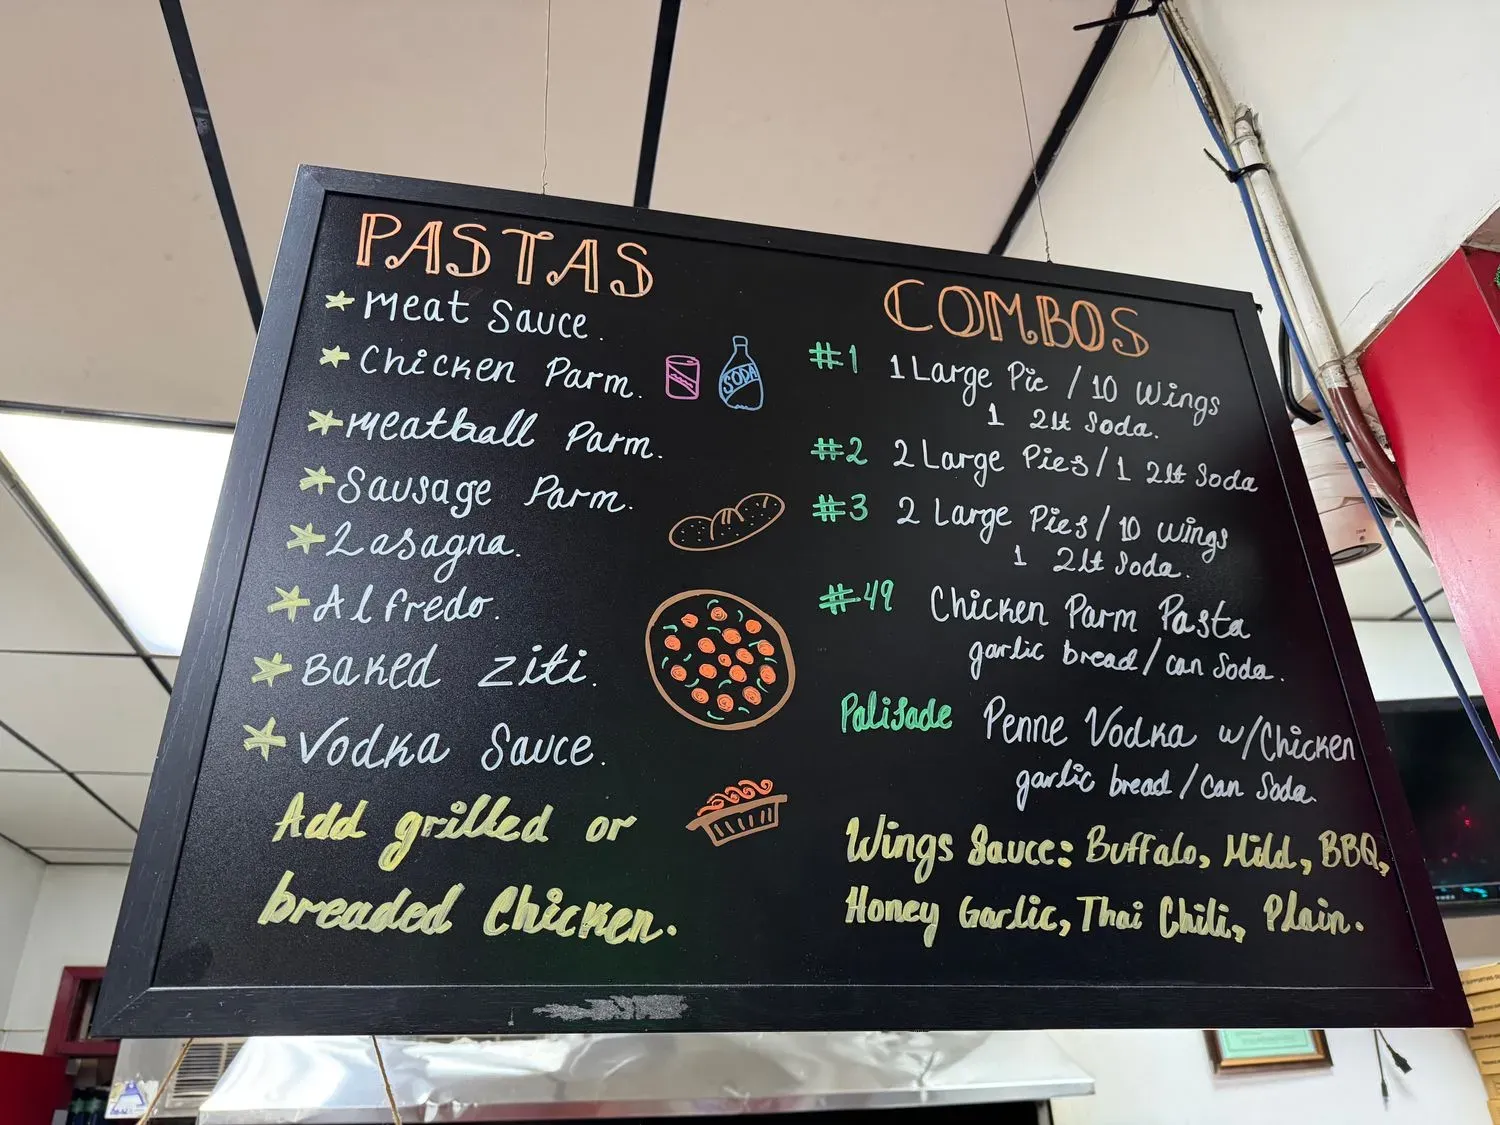 PASTAS
Meat Sauce.
Chicken Parm.
Meatball Parm.
Sausage Parm.
Lasagna.
Alfredo.
Baked Ziti.
Vodka Sauce.
Add grilled or
breaded Chicken.
SODA
COMBOS
#1 1 Large Pie / 10 Wings
1 2lt Soda.
#2 2 Large Pies / 1 2lt Soda
#3 2 Large Pies / 10 wings
1 2lt Soda.
#49 Chicken Parm Pasta
garlic bread / can Soda.
Palisade Penne Vodka w/Chicken
garlic bread / Can Soda.
Wings Sauce: Buffalo, Mild, BBQ,
Honey Garlic, Thai Chili, Plain.